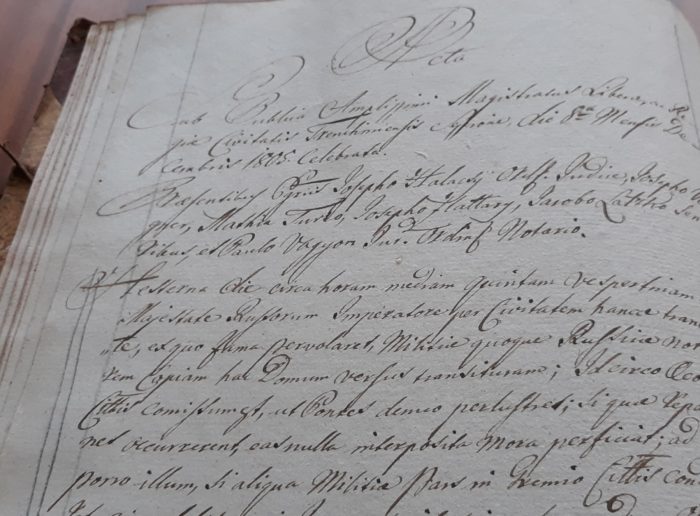 Acta
Sub Publica Amplissimi Magistratus Liberae, ac Re
giae Civitatis Trenchiniensis Sessione die 8ª Mensis De
cembris 1805. Celebrata.
Praesentibus Josepho Halacsi Judice, Josepho
gner, Mathia Turco, Josepho Hattary, Jacobo Latzko Sen
ribus, et Paulo Vagyon Jur. Notario.
Hesterna die circa horam mediam quintam vespertinam
Majestate Russorum Imperatore per Civitatem hancce tran
te, ex quo fama pervolaret, Militiae quoque Russicae
rem Copiam hac Domum versus transituram; Idcirco
Cittis comissum est, ut Pontes denuo perlustret; si quae Repa
nes occurrerent, eas nulla interposita mora perficiat; ad
porro illum, si aliqua Militiae Pars in Gremio Cittis con